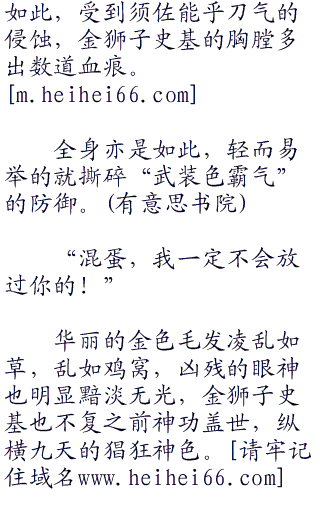 如此，受到须佐能乎刀气的
侵蚀，金狮子史基的胸膛多
出数道血痕。
[m.heihei66.com]
全身亦是如此，轻而易
举的就撕碎“武装色霸气”
的防御。(有意思书院)
“混蛋，我一定不会放
过你的！”
华丽的金色毛发凌乱如
草，乱如鸡窝，凶残的眼神
也明显黯淡无光，金狮子史
基也不复之前神功盖世，纵
横九天的猖狂神色。[请牢记
住域名www.heihei66.com]